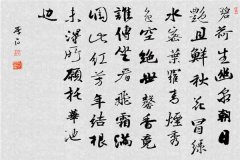 碧荷生幽朝日
艷且鮮秋花冒緑
水密葉羅青煙秀
色空絕世馨香竟
誰傳坐看飛霜滿
凋此紅芳年結根
未得所願托華池
边